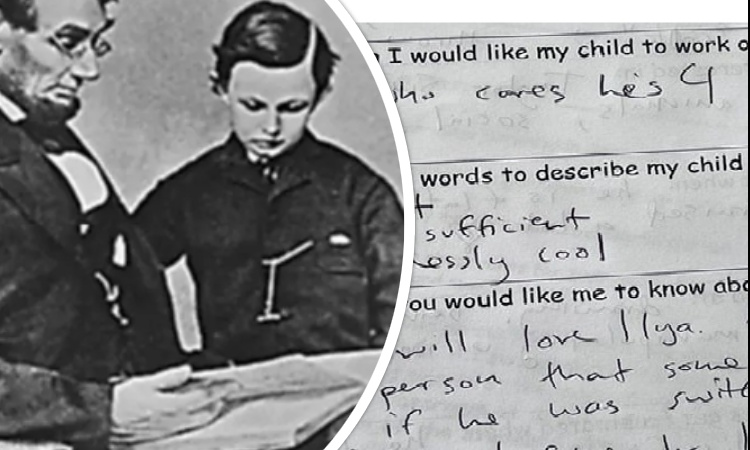 I would like my child to work o
cares he's 4
words to describe my child
sufficient
essly cool
ou would like me to know abo
will love Ilya.
person that some
if he was switc